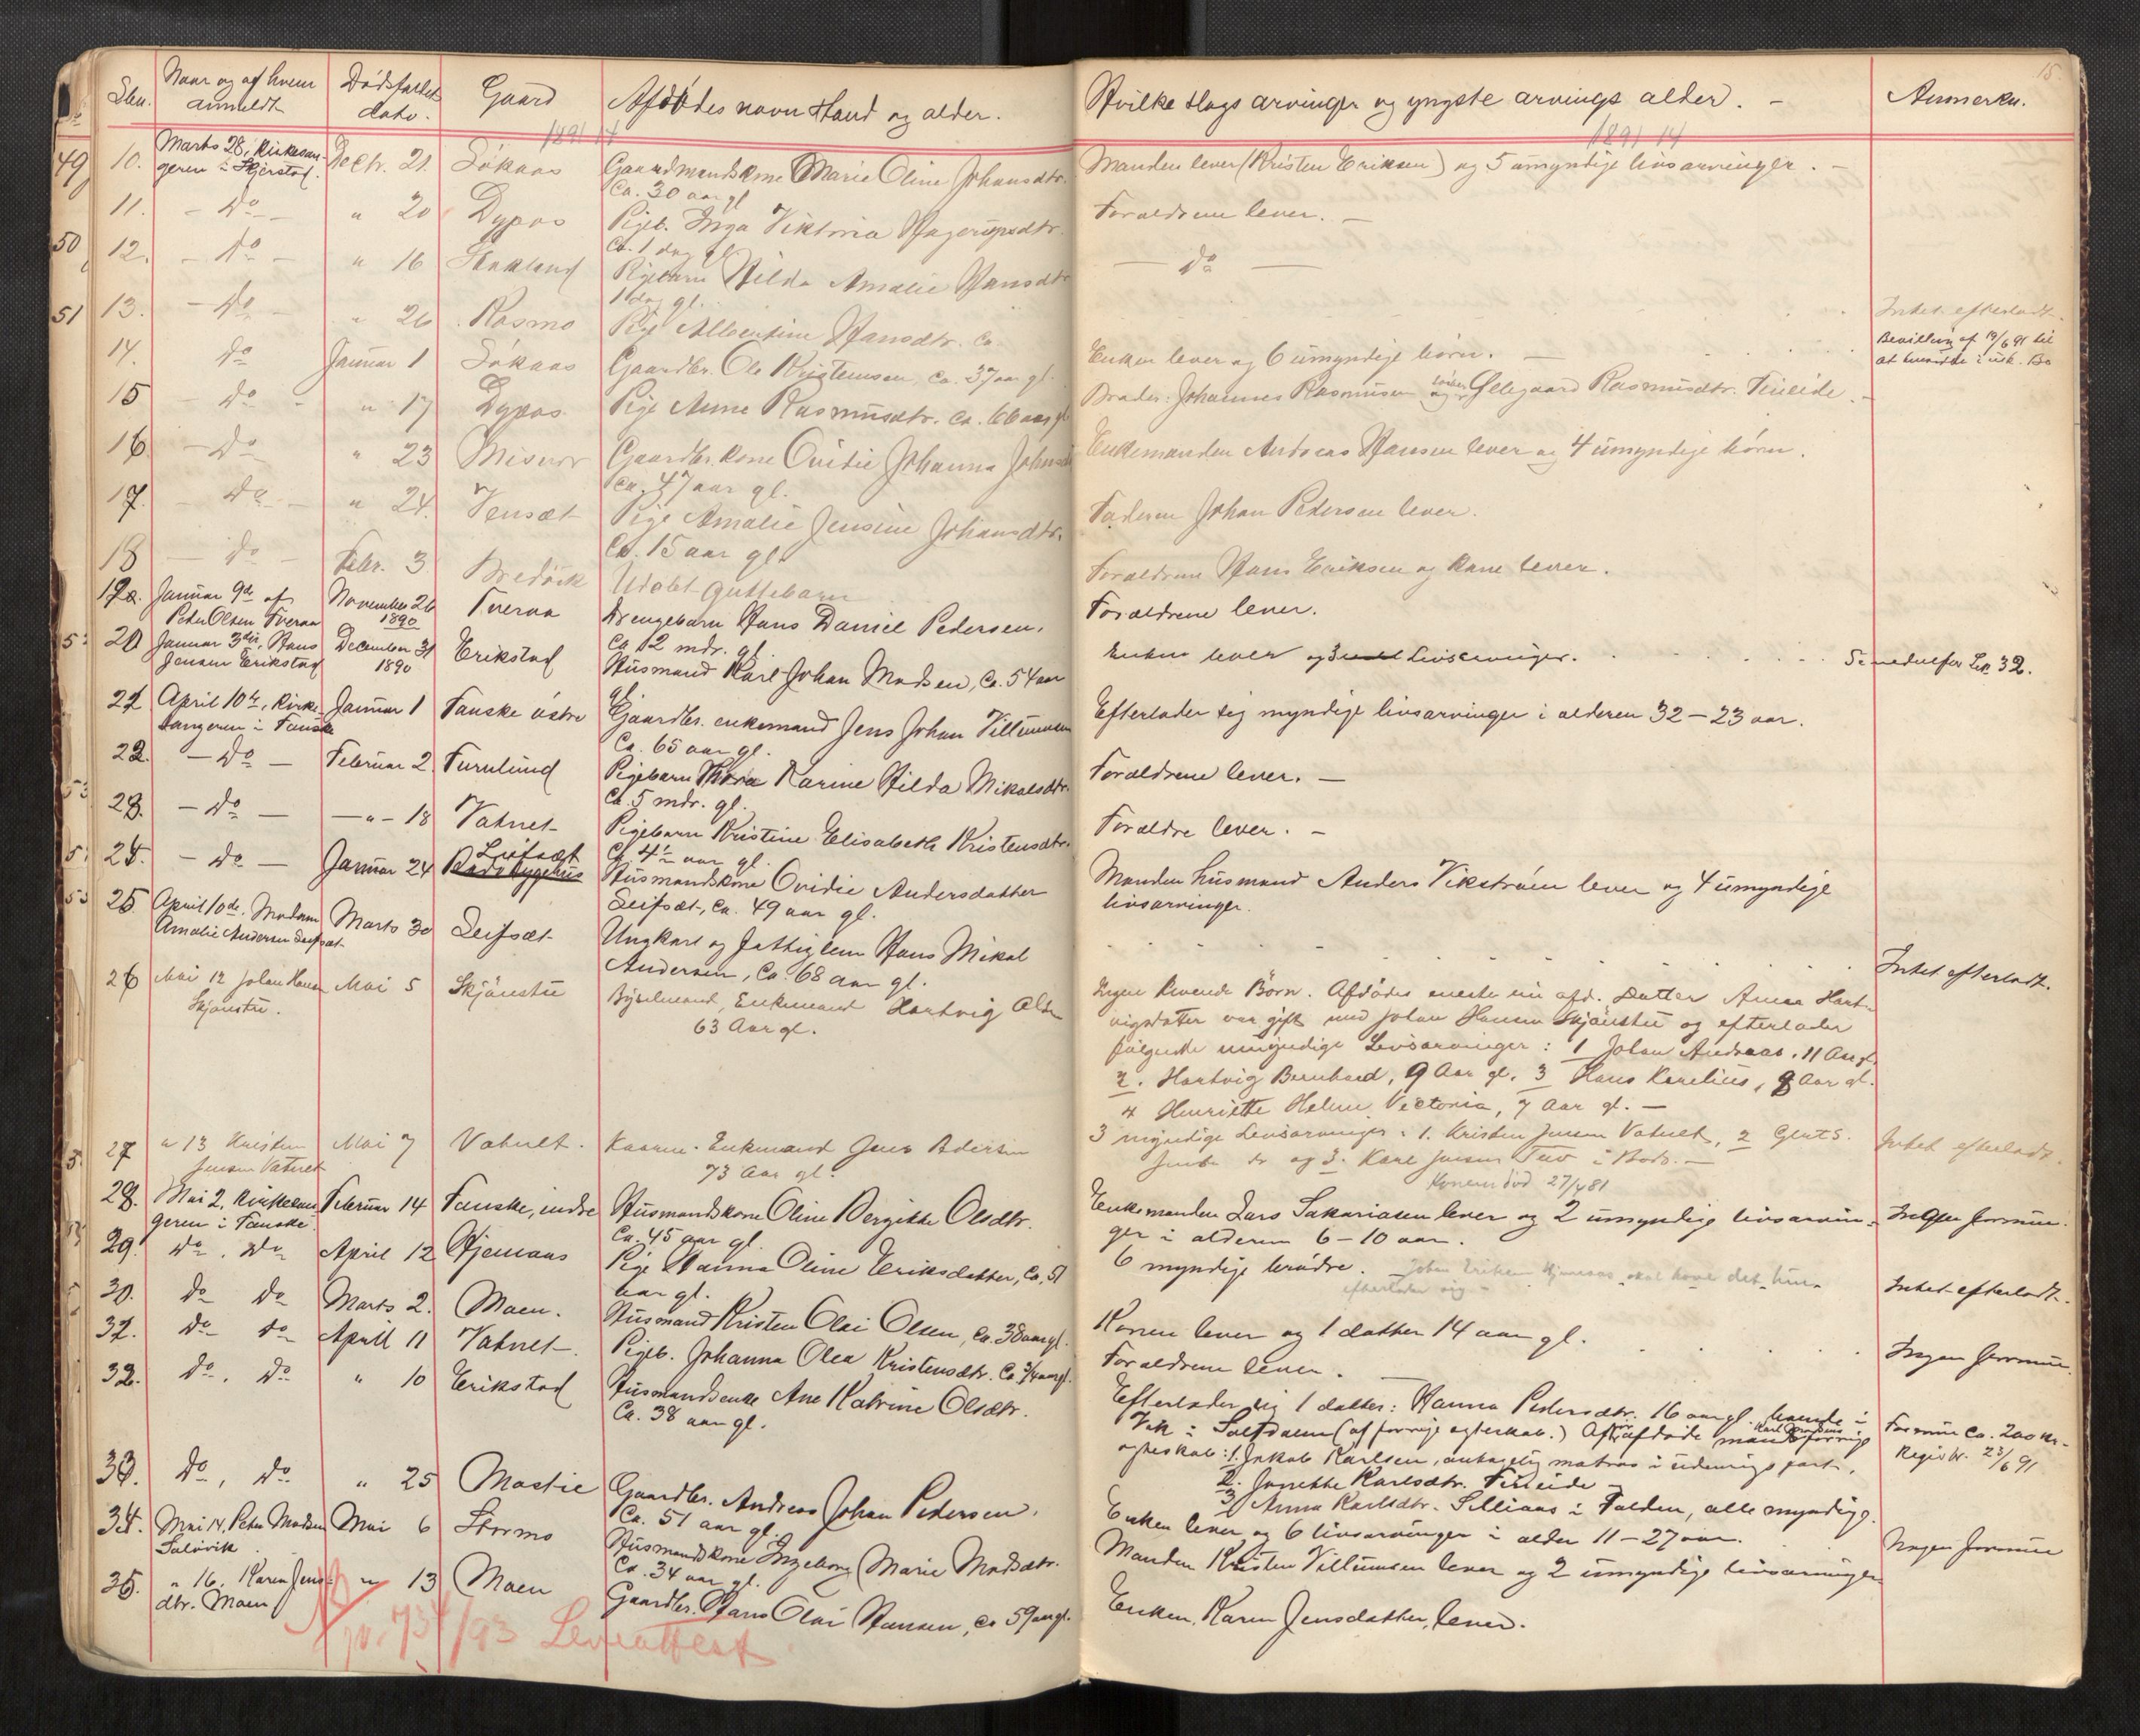 Naar og af hvem anmeldt
Dødsfaldets dato.
Gaard
Afdødes navn stand og alder.
Hvilke slags arvinger og yngste arvings alder. -
Anmerkn.
15.
1891 14
1891 14
49 10. Marts 28, Kirkesan- Decbr. 21. Sökaas Gaardmandskone Marie Oline Johansdtr. Manden lever (Kristen Eriksen) og 5 umyndige livsarvinger. -
geren i Skjerstad. Ca. 30 aar gl
11. - Do - " 20 Dypos Pigeb. Inga Viktoria Hagerupsdtr. Forældrene lever. -
Ca. 1 dag gl
50 12. - Do - " 16 Pigebarn Hilda Amalie Hansdtr - Do -
1 dag gl.
51 13. - Do " 26 Rosmo Pige Albertine Hansdtr. Ca. Intet efterladt.
14. Do Januar 1 Sökaas Gaardbr. Ole Kristensen, ca. 37 aar gl. Enken lever og 6 umyndige börn. - Bevilling af 19/6 91 til
at hensidde i usk. Bo
15 - Do - " 17 Dypos Pige Anne Rasmusdtr. ca. 66 aar gl Broder: Johannes Rasmusen og söster Ellegaard Rasmusdtr. Fineide. -
16 - Do " 23 Misvær Gaardbr. kone Ovidie Johanna Enkemanden Andreas Hansen lever og 4 umyndige börn.
ca. 47 aar gl.
17. - Do - " 24. Vensæt Pige Amalie Jensine Johansdtr. Faderen Johan Pedersen lever.
Ca. 15 aar gl.
18 - Do - Febr. 3 Bredvik Udøbt guttebarn Forældrene Hans Eriksen og Kone lever.
19. Januar 9de af November 26 Tveraa Drengebarn Hans Daniel Pedersen, Forældrene lever.
Peder Olsen Tveraa 1890 Ca 2 mdr. gl.
20 Januar 3die, Hans December 31 Erikstad Husmand Karl Johan Madsen, Ca. 54 aar Enken lever og Livsarvinger. Lbn 32.
Jensen Erikstad 1890 gl.
21 April 10de, Kirke- Januar 1 Fauske östre Gaardbr. enkemand Jens Johan Villumsen Efterlader sig myndige livsarvinger i alderen 32 - 23 aar.
sangeren i Fauske Ca. 65 aar gl.
22. - Do - Februar 2. Furulund Pigebarn Thora Karine Hilda Mikalsdtr. Forældrene lever. -
Ca. 5 mdr. gl.
23. - Do - - " - 18 Vatnet Pigebarn Kristine Elisabeth Kristensdtr. Forældre lever. -
Ca 4½ aar gl.
24. - Do - Januar 24 Leifsæt Husmandskone Ovidie Andersdatter Manden husmand Anders Vikström lever og 4 umyndige
Leifsæt, ca. 49 aar gl. livsarvinger.
25 April 10de. Madam Marts 30 Leifsæt Ungkarl og fattiglem Hans Mikal Intet efterladt.
Amalie Andersen Leifsæt Andersen, Ca. 68 aar gl.
26 Mai 12 Johan Hansen Mai 5 Skjönstu Enkemand Hartvig Olsen Ingen levende Börn. Afdödes eneste nu afd. Datter Anna Hart-
Skjönstu. 63 Aar gl. vigsdatter var gift med Johan Hansen Skjönstu og efterlader
fölgende umyndige Livsarvinger: 1 Johan Andreas, 11 Aar gl.
2. Hartvig Bernhard, 9 Aar gl. 3 Hans Kornelius, 8 Aar gl.
4 Henriette Helene Victoria, 7 Aar gl. -
27 " 13 Kristen Mai 7 Vatnet. Enkemand Jens Pedersen 3 myndige Livsarvinger: 1. Kristen Jensen Vatnet, 2 Gerts. Intet efterladt.
Jensen Vatnet 73 Aar gl. Jensen do og 3. Karl Jensen i Bodö. -
Konen död 27/4 81
28. Mai 2, Kirkesan- Februar 14 Fauske, indre Husmandskone Oline Bergitte Olsdtr. Enkemanden Lars Sakariasen lever og 2 umyndige livsarvin- Ingen formue.
geren i Fauske. Ca. 45 aar gl. ger i alderen 6 - 10 aar.
29. Do. Do April 12 Hjemaas Pige Hanna Oline Eriksdatter, Ca. 51 6 myndige brödre. Johan Eriksen Hjemaas skal have det hun Intet efterladt.
aar gl. efterlader sig -
30. Do Do Marts 2. Moen. Husmand Kristen Olai Olsen, Ca. 38 aar gl. Konen lever og 1 datter 14 aar gl. Ingen formue.
31. Do Do April 11 Vatnet. Pigeb. Johanna Olea Kristensdtr. Ca 3/4 aar gl. Forældrene lever. -
32. Do. Do " 10 Erikstad Husmandsenke Ane Katrine Olsdtr. Efterlader sig 1 datter: Hanna Pedersdtr. 16 aar gl. boende i Formue ca. 200 kr.
Ca. 38 aar gl. Vik i Saltdalen (af forrige egteskab.) Karl Madsens Registr. 23/6 91
egteskab: 1. Jakob Karlsen, antagelig matros i udenrigs fart,
2. Jonette Karlsdtr. Fineide -
3 Anna Karlsdtr. Selliaas i Folden, alle myndige.
33. Do, Do " 25 Mostie Gaardbr. Andreas Johan Pedersen, Enken lever og 6 livsarvinger i alder 11 - 27 aar.
Ca. 51 aar gl.
34. Mai 14. Peter Madsen Mai 6 Stormo Husmandskone Ingeborg Marie Madsdtr. Manden Kristen Villumsen lever og 2 umyndige livsarvinger Ingen formue
Salövik Ca. 34 aar gl.
35. " 16. Karen Jens- " 13 Moen Gaardbr. Hans Olai Hansen, ca 59 aar gl. Enken, Karen Jensdatter, lever.
dtr. Moen
jr. 734/93 Leveattest